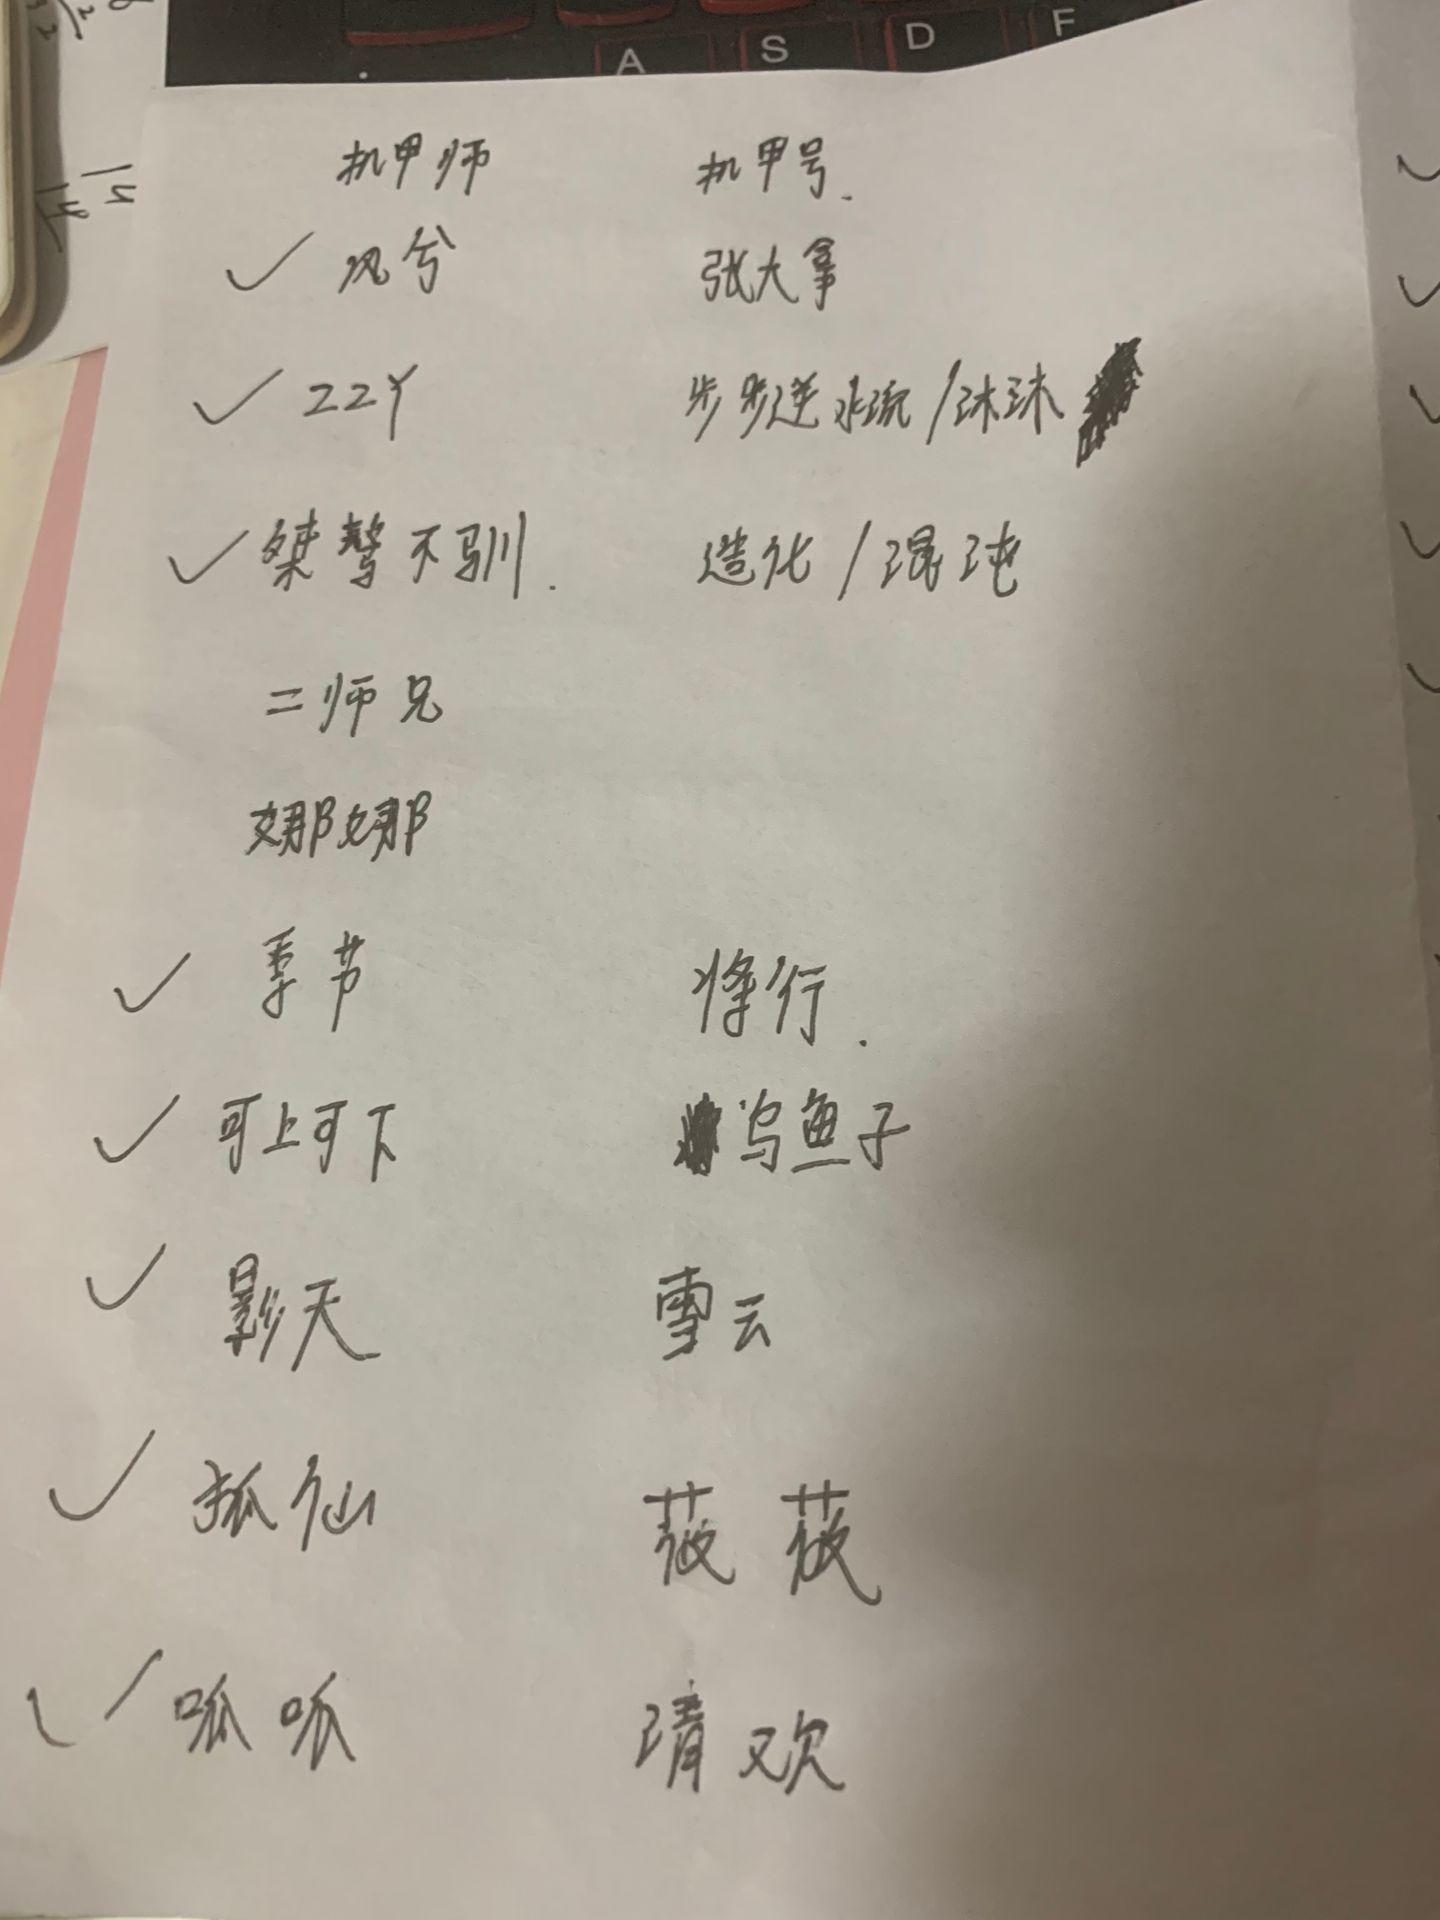 A S D F
机甲师 机甲号.
风兮 张大拿
ZZY 步步逆水流/沐沐
桀骜不驯. 造化/混沌
二师兄
娜娜
季节 将行.
可上可下 乌鱼子
影天 雪云
狐仙 薇薇
呱呱 清欢
14
14